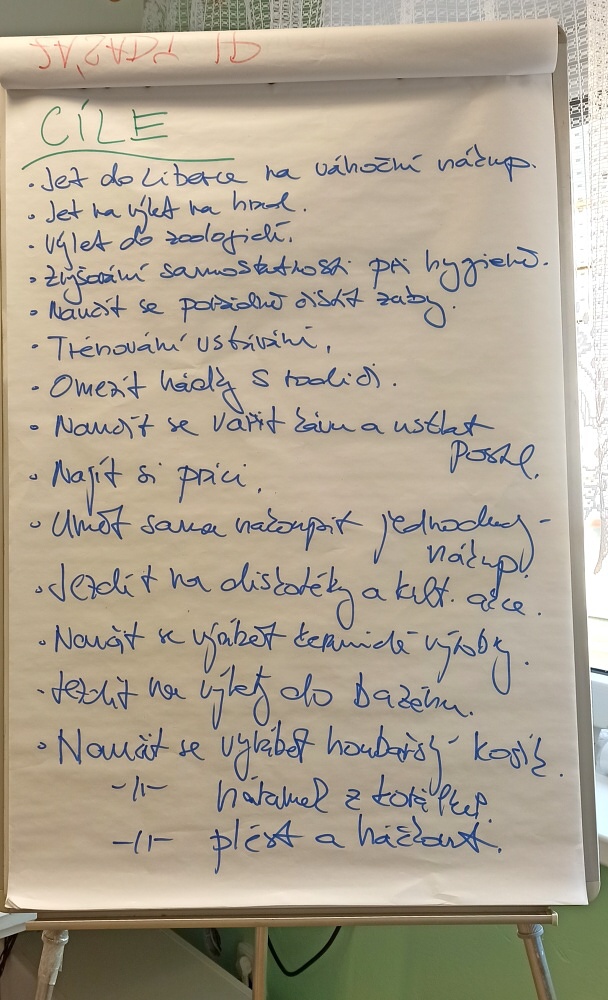 CÍLE
· Jet do Liberce na vánoční nákup.
· Jet na výlet na hrad.
· Výlet do zoologické.
· Zvyšování samostatnosti při hygieně.
· Naučit se pořádně čistit zuby.
· Trénování vstávání.
· Omezit hádky s rodiči.
· Naučit se vařit kávu a ustlat
postel.
· Najít si práci.
· Umět sama nakoupit jednoduchý
nákup.
· Jezdit na diskotéky a kult. akce.
· Naučit se vyrábět keramické výrobky.
· Jezdit na výlety do bazénu.
· Naučit se vyrábět houbařský košík.
-//- náramek z korálků.
-//- plést a háčkovat.